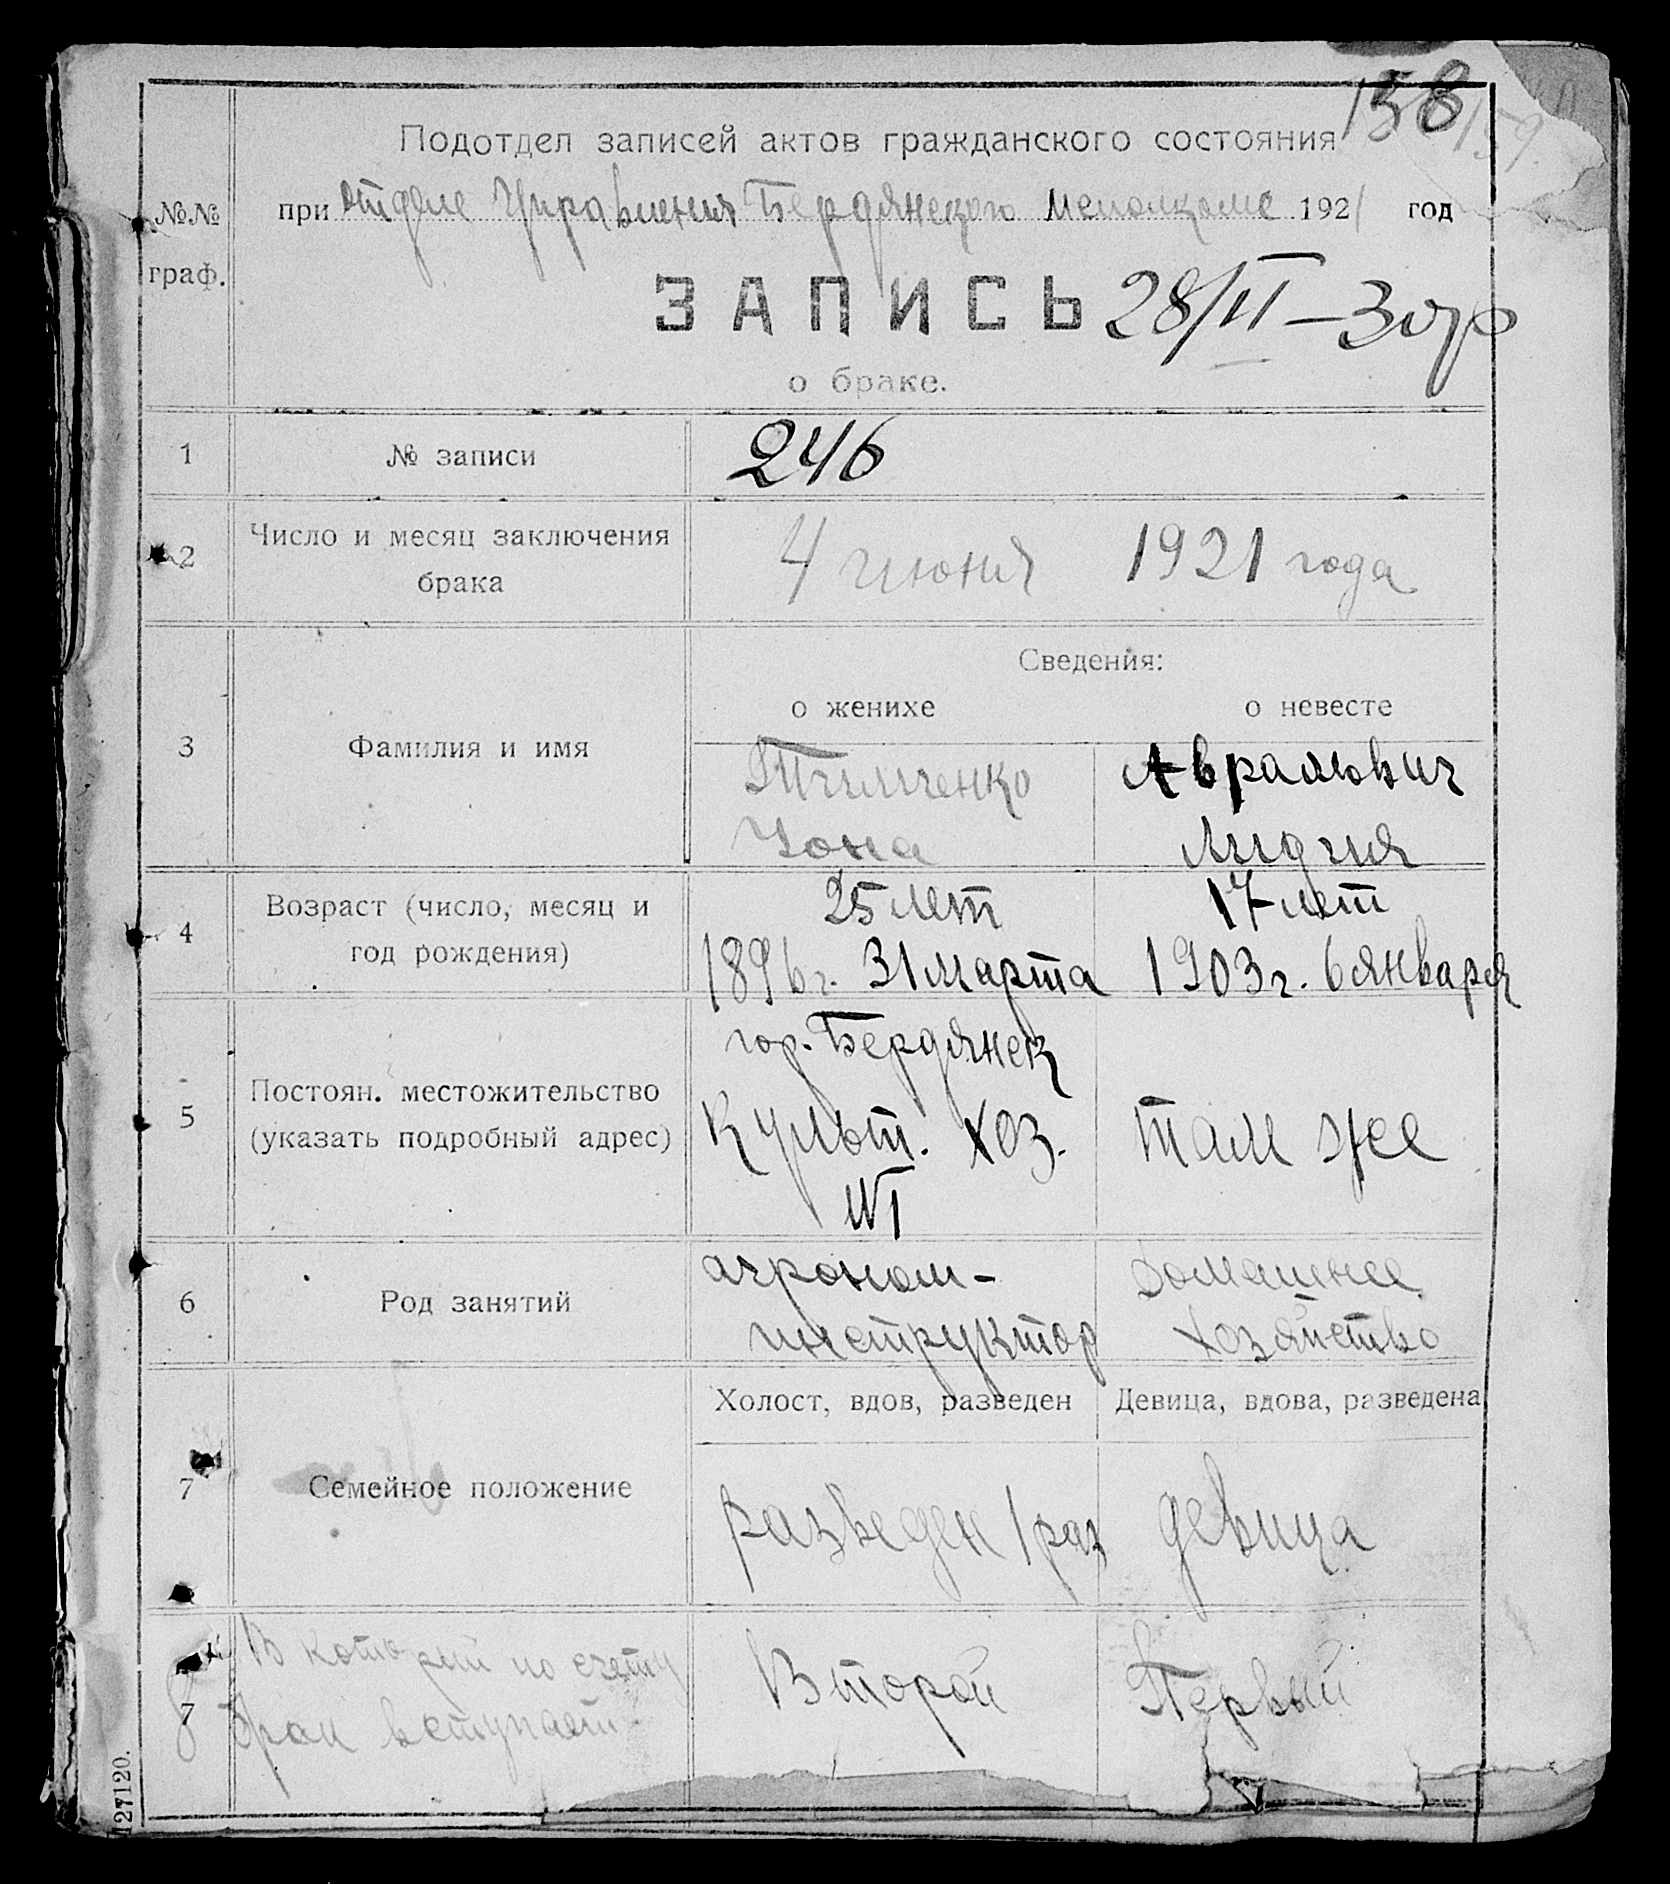 158
159.
Подотдел записей актов гражданского состояния
№№ граф.
при отделе Управления Бердянского Исполкома 1921 год
ЗАПИСЬ
28/VI
о браке.
1 № записи 246
2 Число и месяц заключения брака 4 июня 1921 года
Сведения:
о женихе о невесте
3 Фамилия и имя
Тимченко Аврамович
Иона Лидия
4 Возраст (число, месяц и год рождения)
25 лет 17 лет
1896г. 31 марта 1903г. 6 января
5 Постоян. местожительство (указать подробный адрес)
гор. Бердянск
Культ. хоз. там же
№1
6 Род занятий
агроном- домашнее
инструктор хозяйство
Холост, вдов, разведен Девица, вдова, разведена
7 Семейное положение
разведен 1 раз девица
8 7 В который по счету Второй Первый
брак вступает
127120.